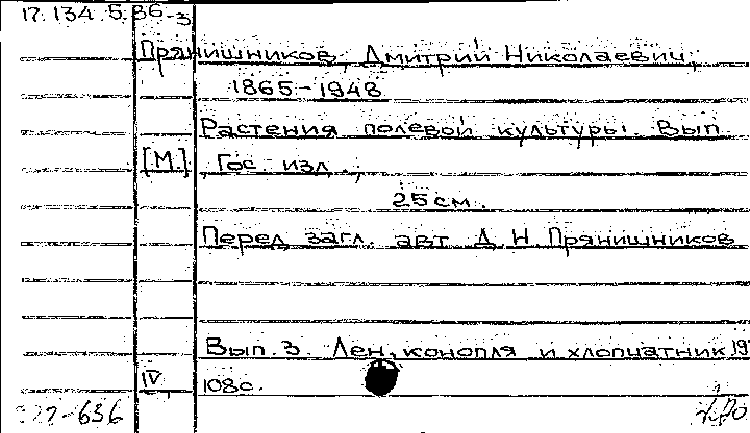 17.134.5.86-3
Прянишников, Дмитрий Николаевич,
1865-1948
Растения полевой культуры. Вып
[М.], Гос. изд.,
25 см.
Перед загл. авт Д Н Прянишников
Вып. 3. Лен, конопля и хлопчатник 19
IV, 108с.
-636